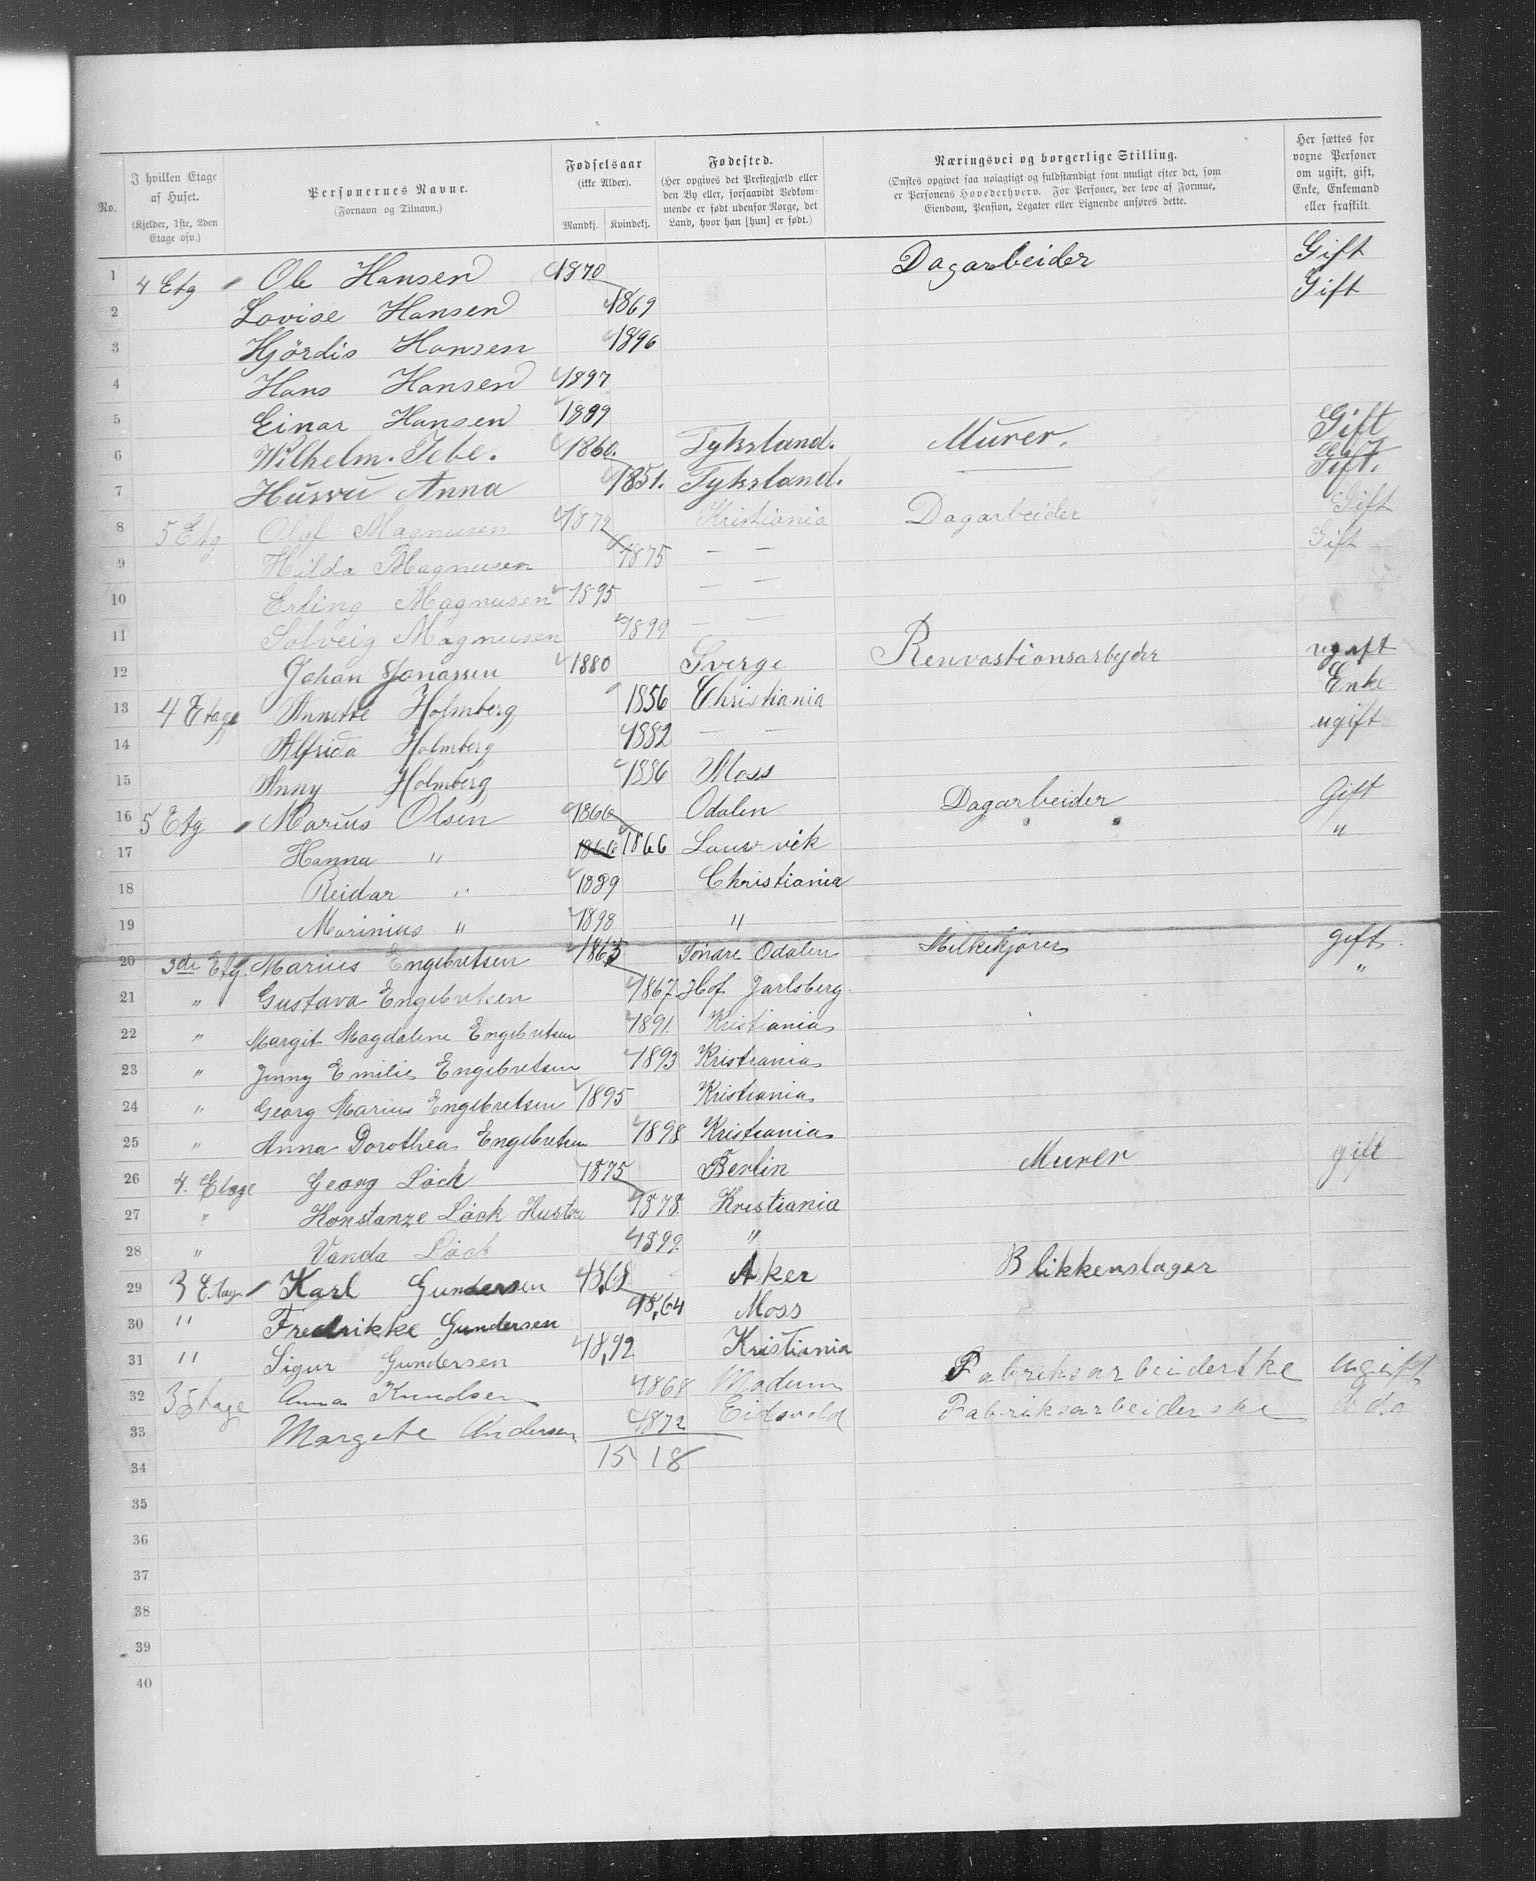 No.
I hvilken Etage af Huset.
(Kjelder, 1ste, 2den Etage osv.)
Personernes Navne.
(Fornavn og Tilnavn.)
Fødselsaar
(ikke Alder).
Mandkj. Kvindekj.
Fødested.
(Her opgives det Prestegjæld eller den By eller, forsaavidt Bedkommende er født udenfor Norge, det Land, hvor han [hun] er født.)
Næringsvei og borgerlige Stilling.
(Ønskes opgivet saa nøiagtigt og fuldstændigt som muligt efter det, som er Personens Hovederhverv. For Personer, der leve af Formue, Eiendom, Pension, Legater eller Lignende anføres dette.
Her sættes for vorne Personer om ugift, gift, Enke, Enkemand eller fraskilt.
1 4 Etg Ole Hansen 1870 Dagarbeider Gift
2 Lovise Hansen 1869 Gift
3 Hjördis Hansen 1896
4 Hans Hansen 1897
5 Einar Hansen 1899
6 Wilhelm. Tebe. 1860. Tyksland. Murer. Gift
7 Husvu Anna 1851. Tyksland. Gift.
8 5 Etg Olaf Magnusen 1872 Kristiania Dagarbeider Gift
9 Hilda Magnusen 1875 — — Gift
10 Erling Magnusen 1895 — —
11 Solveig Magnusen 1899 — —
12 Johan Jonassen 1880 Sverge Renvastionsarbejder ugift
13 4 Etage Annette Holmberg 1856 Christiania Enke
14 Alfrida Holmberg 1882 — — ugift
15 Anny Holmberg 1886 Moss
16 5 Etg Marius Olsen 1866 Odalen Dagarbeider Gift
17 Hanna " 1866 1866 Laurvik "
18 Reidar " 1889 Christiania
19 Marinius " 1898 "
20 3de Etg. Marius Engebretsen 1863 Söndre Odalen Melkekjörer gift
21 " Gustava Engebretsen 1867 Hof Jarlsberg "
22 " Margit Magdalene Engebretsen 1891. Kristiania
23 " Jenny Emilie Engebretsen 1893 Kristiania
24 " Georg Marius Engebretsen 1895 Kristiania
25 " Anna Dorothea Engebretsen 1898 Kristiania
26 4. Etage Georg Löck 1875 Berlin Murer gift
27 " Konstanze Löck Hustru 1878 Kristiania
28 " Vanda Löck 1899. "
29 3 Etage Karl Gundersen 1868 Aker Blikkenslager
30 " Fredrikke Gundersen 1864 Moss
31 " Sigur Gundersen 1892 Kristiania
32 3 Etage Anna Knudsen 1868 Modum Fabriksarbeiderske ugift
33 Margete Andersen 1872 Eidsvold Fabriksarbeiderske do
34 15 18
35
36
37
38
39
40